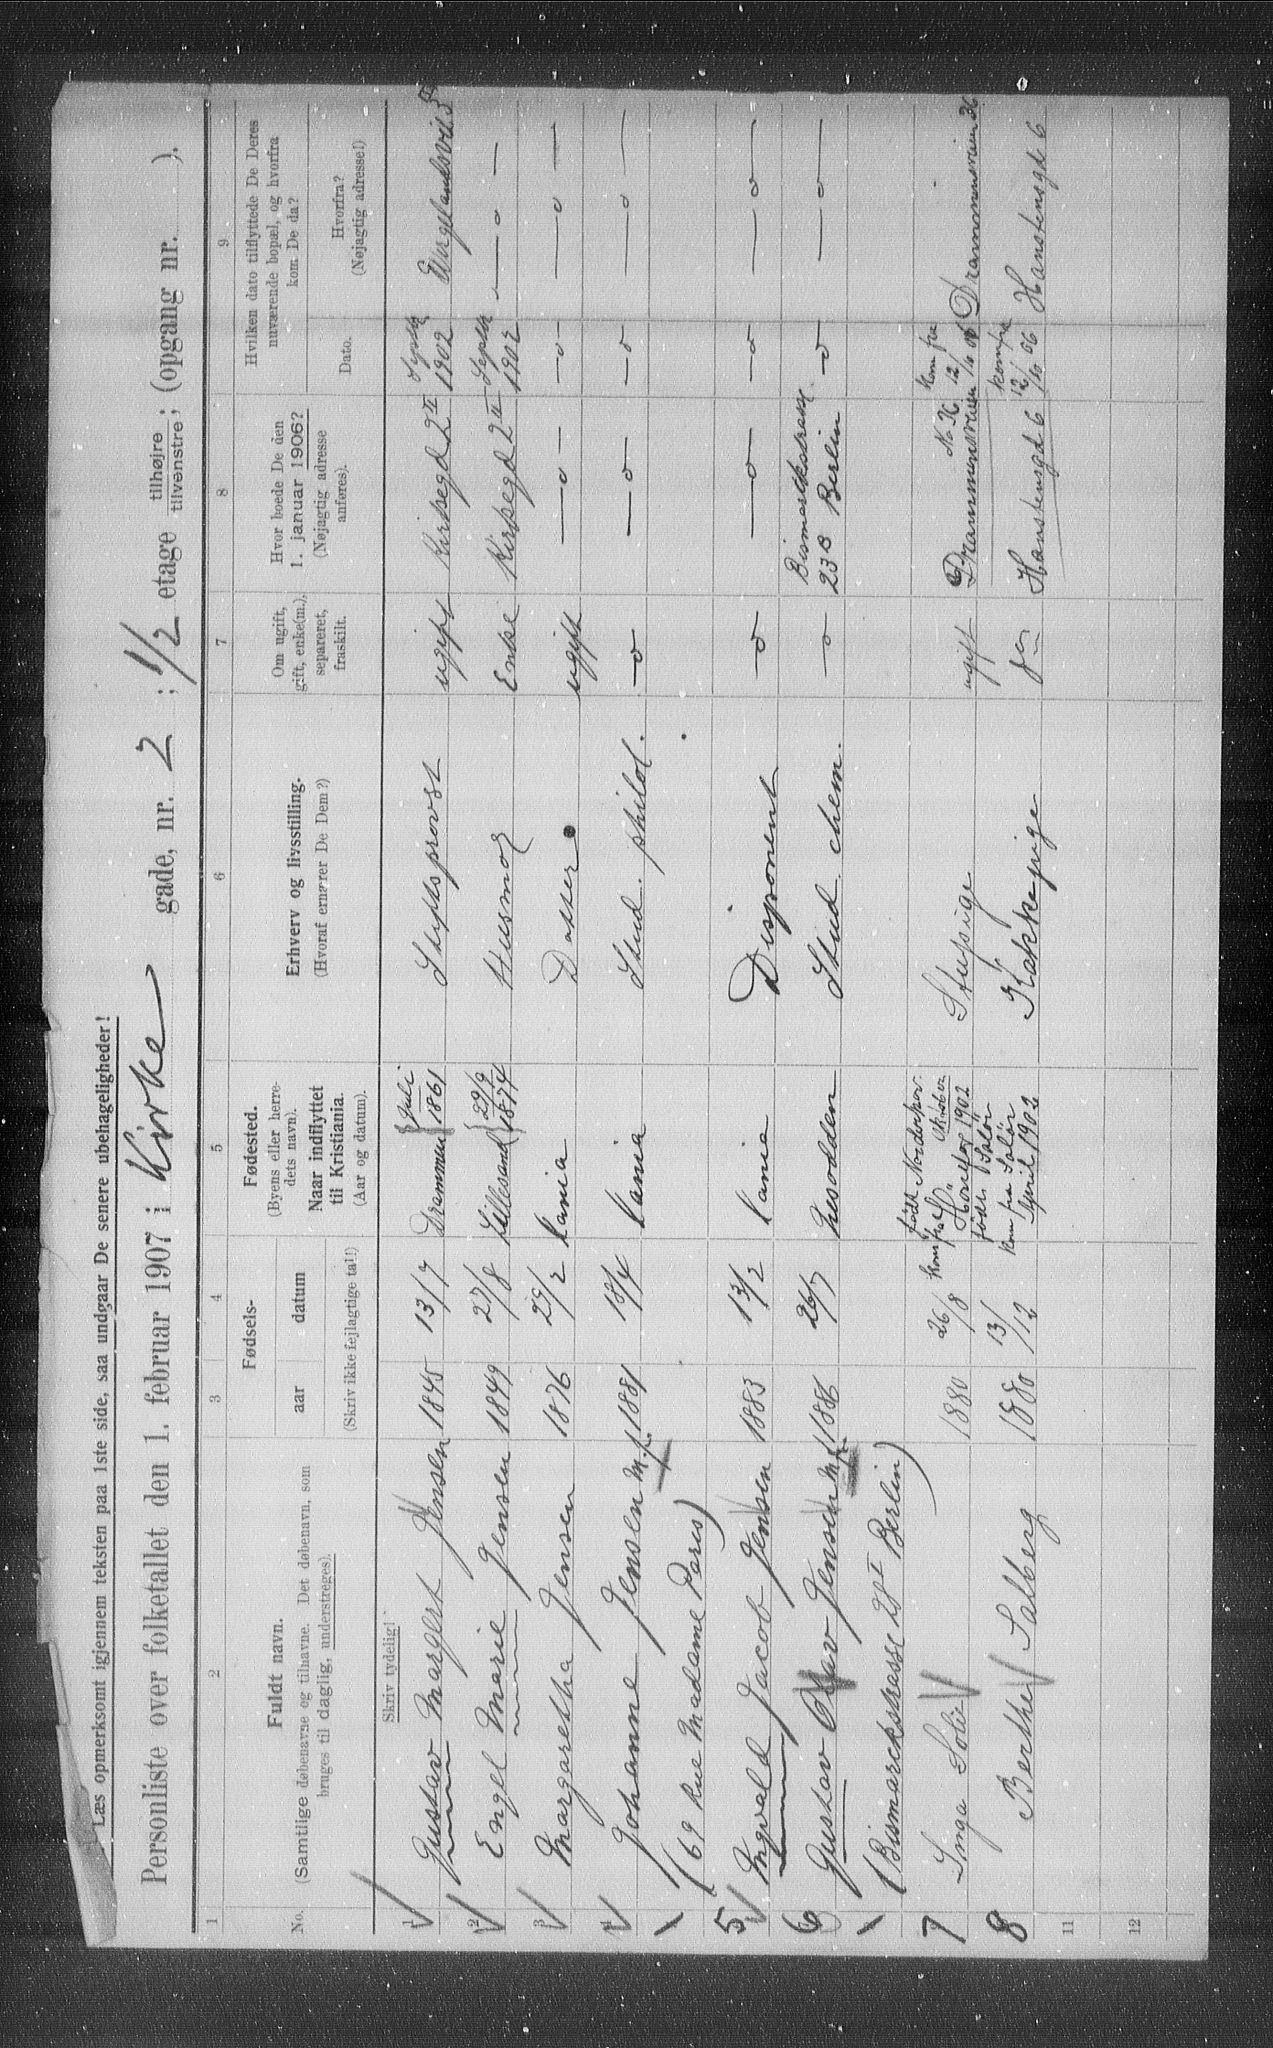 Læs opmerksomt igjennem teksten paa 1ste side, saa undgaar De senere ubehageligheder!
Personliste over folketallet den 1. februar 1907 i Kirke gade, nr. 2 ; 1/2 etage tilhøjre / tilvenstre; (opgang nr. ).
1 2 3 4 5 6 7 8 9
No.
Fuldt navn.
(Samtlige døbenavne og tilnavne. Det døbenavn, som
bruges til daglig, understreges).
Fødsels-
aar datum
(Skriv ikke fejlagtige tal!)
Fødested.
(Byens eller herre-
dets navn).
Naar indflyttet
til Kristiania.
(Aar og datum).
Erhverv og livsstilling.
(Hvoraf ernærer De Dem?)
Om ugift,
gift, enke(m.),
separeret,
fraskilt.
Hvor boede De den
1. januar 1906?
(Nøjagtig adresse
anføres).
Hvilken dato tilflyttede De Deres
nuværende bopæl, og hvorfra
kom De da?
Dato.
Hvorfra?
(Nøjagtig adresse!)
Skriv tydelig!
1 Gustav Margert Jensen 1845 13/7 Drammen Juli 1861 Stiftsprovst ugift Kirkegd 2 II Septbr 1902
2 Engel Marie Jensen 1849 27/8 Lillesand 29/9 1874 Husmor Enke Kirkegd 2 II Septbr 1902 — o —
3 Margaretha Jensen 1876 29/2 Kania Datter ugift — o — — o — — o —
4 Johanne Jensen M.f. 1881 18/4 Kania Stud. philol. — o — — o — — o — — o —
(69 Rue Madame Paris)
5 Ingvald Jacob Jensen 1883 13/2 Kania Disponent — o — — o — — o — — o —
6 Gustav Olav Jensen M.f. 1886 26/7 Nesodden Stud. chem. — o — Bismarckstrasse 23 B Berlin — o — — o —
(Bismarckstrasse 23 I Berlin)
7 Inga Solli 1880 26/8 født Nordenhov kom fra Hønefos Oktober 1902 Stupige ugift Drammensveien No 36 kom fra 12/10 06 Drammensveien 36
8 Berthe Salberg 1880 13/12 født i Solør kom fra Solør April 1902 Kokkepige Hanstensgd 6 kom fra 12/10 06 Hanstensgd 6
11
12